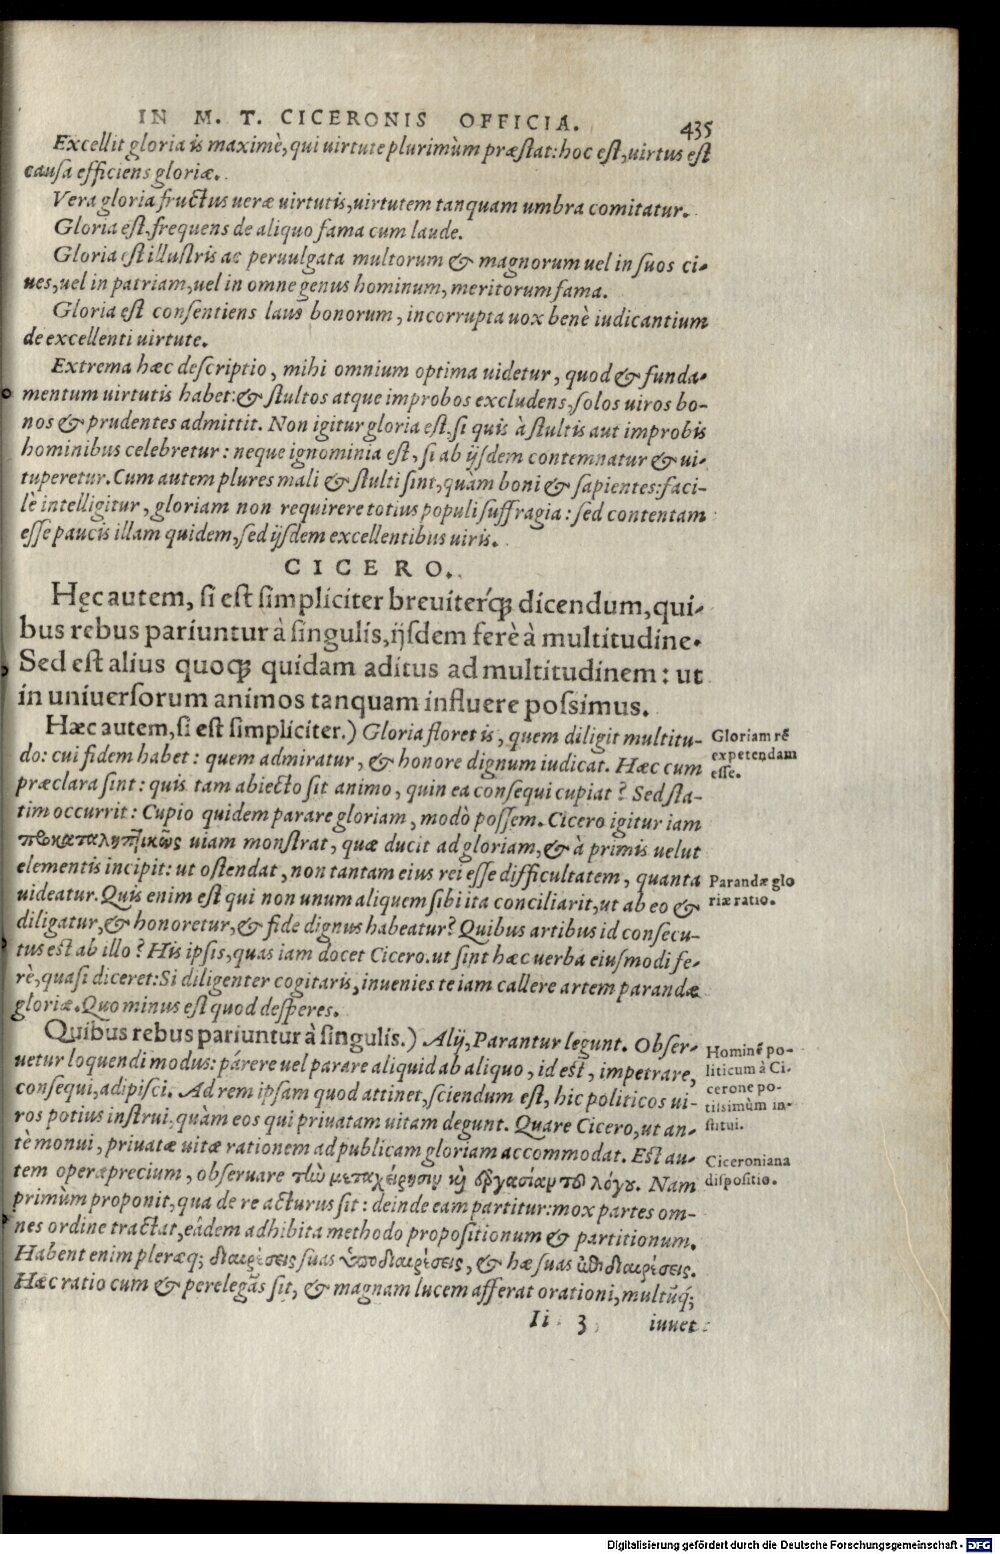 IN M. T. CICERONIS OFFICIA. 435
Excellit gloria is maximè, qui uirtute plurimùm præstat: hoc est, uirtus est
causa efficiens gloriæ.
Vera gloria fructus ueræ uirtutis, uirtutem tanquam umbra comitatur.
Gloria est, frequens de aliquo fama cum laude.
Gloria est illustris ac peruulgata multorum & magnorum uel in suos ci-
ues, uel in patriam, uel in omne genus hominum, meritorum fama.
Gloria est consentiens laus bonorum, incorrupta uox benè iudicantium
de excellenti uirtute.
Extrema hæc descriptio, mihi omnium optima uidetur, quod & funda-
mentum uirtutis habet: & stultos atque improbos excludens, solos uiros bo-
nos & prudentes admittit. Non igitur gloria est, si quis à stultis aut improbis
hominibus celebretur: neque ignominia est, si ab ijsdem contemnatur & ui-
tuperetur. Cum autem plures mali & stulti sint, quàm boni & sapientes: faci-
lè intelligitur, gloriam non requirere totius populi suffragia: sed contentam
esse paucis illam quidem, sed ijsdem excellentibus uiris.
CICERO.
Hęc autem, si est simpliciter breuiterq́ꝫ dicendum, qui-
bus rebus pariuntur à singulis, ijsdem ferè à multitudine.
Sed est alius quoqꝫ quidam aditus ad multitudinem: ut
in uniuersorum animos tanquam influere possimus.
Hæc autem, si est simpliciter.) Gloria floret is, quem diligit multitu-
do: cui fidem habet: quem admiratur, & honore dignum iudicat. Hæc cum
præclara sint: quis tam abiecto sit animo, quin ea consequi cupiat? Sed sta-
tim occurrit: Cupio quidem parare gloriam, modò possem. Cicero igitur iam
προκαταληπτικῶς uiam monstrat, quæ ducit ad gloriam, & à primis uelut
elementis incipit: ut ostendat, non tantam eius rei esse difficultatem, quanta
uideatur. Quis enim est qui non unum aliquem sibi ita conciliarit, ut ab eo &
diligatur, & honoretur, & fide dignus habeatur? Quibus artibus id consecu-
tus est ab illo? His ipsis, quas iam docet Cicero. ut sint hæc uerba eiusmodi fe-
rè, quasi diceret: Si diligenter cogitaris, inuenies te iam callere artem parandæ
gloriæ. Quo minus est quod desperes.
Quibus rebus pariuntur à singulis.) Alij, Parantur legunt. Obser-
uetur loquendi modus: párere uel parare aliquid ab aliquo, id est, impetrare,
consequi, adipisci. Ad rem ipsam quod attinet, sciendum est, hic politicos ui-
ros potius instrui, quàm eos qui priuatam uitam degunt. Quare Cicero, ut an-
tè monui, priuatæ uitæ rationem ad publicam gloriam accommodat. Est au-
tem operæprecium, obseruare τὼ μεταχείρησιν καὶ ἐργασίαν τοῦ λόγου. Nam
primùm proponit, qua de re acturus sit: deinde eam partitur: mox partes om-
nes ordine tractat, eádem adhibita methodo propositionum & partitionum.
Habent enim pleræq; διαιρέσεις suas ὑποδιαιρέσεις, & hæ suas ἐπιδιαιρέσεις.
Hæc ratio cum & perelegãs sit, & magnam lucem afferat orationi, multũq́;
Ii 3 iuuet
Gloriam rẽ
expetendam
esse.
Parandæ glo
riæ ratio.
Hominẽ po-
liticum à Ci-
cerone po-
tissimùm in-
stitui.
Ciceroniana
dispositio.
Digitalisierung gefördert durch die Deutsche Forschungsgemeinschaft - DFG